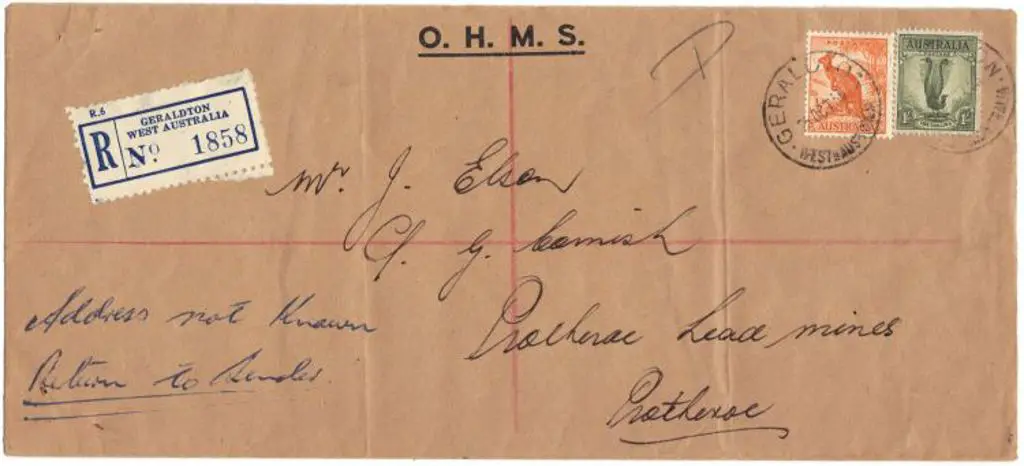 O. H. M. S.
R.6
GERALDTON
WEST AUSTRALIA
R No 1858
GERALDTON
WEST AUST
AUSTRALIA
AUSTRALIA
1/-
Mr J. Elson
C/. G. Cornish
Protheroe Lead mines
Protheroe
Address not Known
Return to Sender.